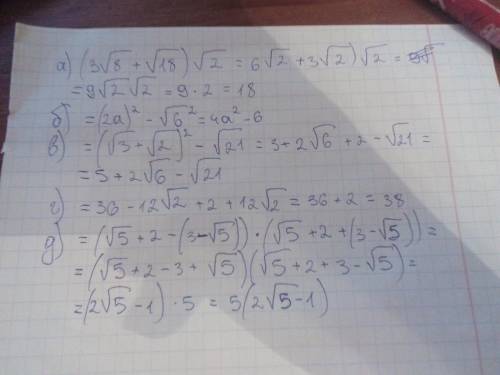 а) (3√8 + √18) √2 = 6√2 + 3√2) √2 =
= 9√2 √2 = 9 · 2 = 18
б) = (2a)² - √6² = 4a² - 6
в) = (√3 + √2)² - √21 = 3 + 2√6 + 2 - √21 =
= 5 + 2√6 - √21
г) = 36 - 12√2 + 2 + 12√2 = 36 + 2 = 38
д) = (√5 + 2 - (3 - √5)) · (√5 + 2 + (3 - √5)) =
= (√5 + 2 - 3 + √5) (√5 + 2 + 3 - √5) =
= (2√5 - 1) · 5 = 5(2√5 - 1)